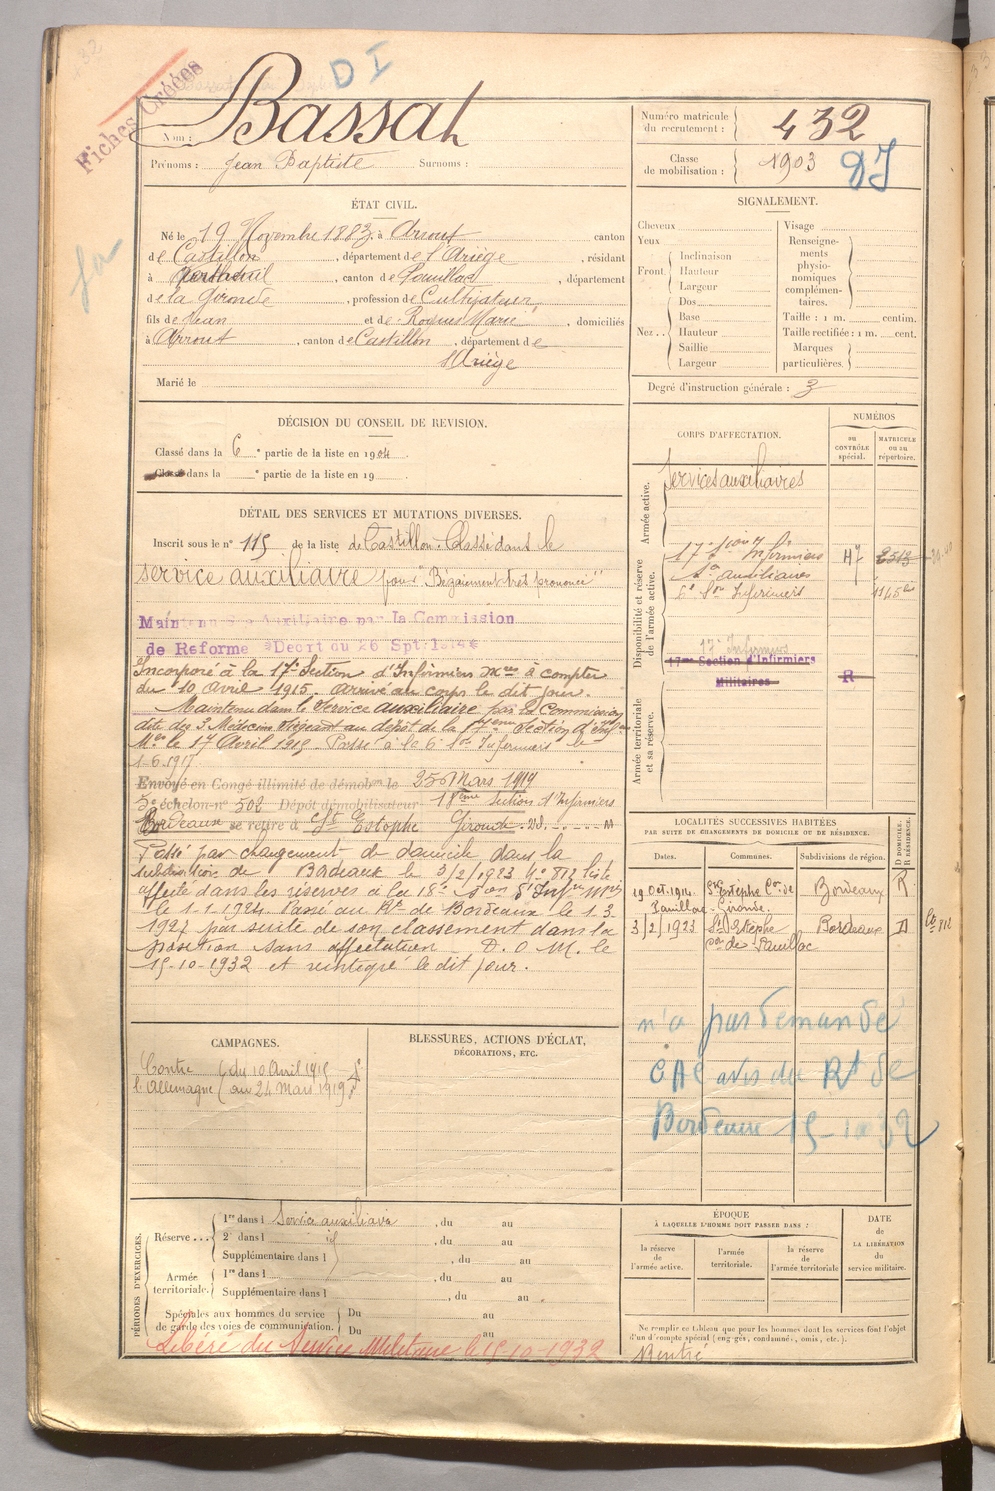 Fiches Créées
DI
Nom : Bassat
Prénoms : Jean Baptiste Surnoms :
Numéro matricule du recrutement : 432
Classe de mobilisation : 1903
DI
ÉTAT CIVIL.
Né le 19 Novembre 1883, à Arrout canton
de Castillon, département de l'Ariège, résidant
à Vertheuil, canton de Pauillac, département
de la Gironde, profession de Cultivateur,
fils de Jean et de Rogues Marie, domiciliés
à Arrout, canton de Castillon, département de
l'Ariège
Marié le
SIGNALEMENT.
Cheveux
Yeux
Front. Inclinaison
Hauteur
Largeur
Nez. Dos
Base
Hauteur
Saillie
Largeur
Visage
Renseignements physionomiques complémentaires.
Taille : 1 m. centim.
Taille rectifiée : 1 m. cent.
Marques particulières.
Degré d'instruction générale : 3
DÉCISION DU CONSEIL DE REVISION.
Classé dans la 6e partie de la liste en 1904.
Classé dans la e partie de la liste en 19
DÉTAIL DES SERVICES ET MUTATIONS DIVERSES.
Inscrit sous le n° 115 de la liste de Castillon. Classé dans le
service auxiliaire pour "Bégaiement très prononcé"
Maintenu Sce Auxiliaire par la Commission
de Reforme *Décrt du 26 Spt. 1914*
Incorporé à la 17e Section d'Infirmiers Mres à compter
du 10 Avril 1915. Arrivé au corps le dit jour.
Maintenu dans le Service auxiliaire par la Commission
dite des 3 Médecins siégeant au dépôt de la 17ème Section d'Inf.
Mres le 17 Avril 1915. Passé à la 6e Son Infirmiers le
1-6-1917
Envoyé en Congé illimité de démobon le 25 Mars 1919
5e échelon-n° 502 Dépôt démobilisateur 18ème Section d'Infirmiers
Bordeaux se retire à St Estèphe Gironde.
Passé par changement de domicile dans la
subdivision de Bordeaux le 3/2/1923 N° 812 liste
affecté dans les réserves à la 18e Son d'Infirs Mres
le 1.1.1924. Passé au Rt de Bordeaux le 1.3.
1927 par suite de son classement dans la
position sans affectation D.O.M. le
15-10-1932 et réintégré le dit jour.
CORPS D'AFFECTATION.
NUMÉROS
au contrôle spécial.
matricule ou au répertoire.
Armée active.
Services auxiliaires
Disponibilité et réserve de l'armée active.
17e Son Infirmiers H7 2513
S. auxiliaires
6e Son Infirmiers 1145 bis
17e Infirmiers
17me Section d'Infirmiers
Militaires R
Armée territoriale et sa réserve.
LOCALITÉS SUCCESSIVES HABITÉES
PAR SUITE DE CHANGEMENTS DE DOMICILE OU DE RÉSIDENCE.
Dates. Communes. Subdivisions de région. D DOMICILE. R RÉSIDENCE.
19 Oct. 1914. St Estèphe Con de Bordeaux R
Pauillac - Gironde.
3/2/1923 St Estèphe Bordeaux D 812
con de Pauillac
n'a pas demandé
CAC avis du Rt de
Bordeaux 15-10-32
CAMPAGNES.
Contre du 10 Avril 1915
l'Allemagne au 24 Mars 1919
BLESSURES, ACTIONS D'ÉCLAT,
DÉCORATIONS, ETC.
PÉRIODES D'EXERCICES.
Réserve... 1re dans l Service auxiliaire, du au
2e dans l id, du au
Supplémentaire dans l, du au
Armée territoriale. 1re dans l, du au
Supplémentaire dans l, du au
Spéciales aux hommes du service de garde des voies de communication. Du au
Du au
Libéré du Service Militaire le 15-10-1932
ÉPOQUE
À LAQUELLE L'HOMME DOIT PASSER DANS :
la réserve de l'armée active.
l'armée territoriale.
la réserve de l'armée territoriale
DATE de LA LIBÉRATION du service militaire.
Ne remplir ce tableau que pour les hommes dont les services font l'objet
d'un décompte spécial (engagés, condamnés, omis, etc.).